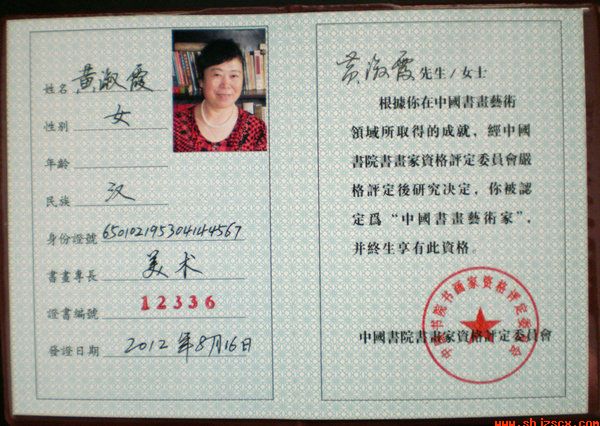 姓名 黄淑霞
性别 女
年齡
民族 汉
身份證號
書畫專長 美术
證書編號 12336
發證日期 2012年8月16日
黄淑霞 先生/女士
根據你在中國書畫藝術
領域所取得的成就，經中國
書院書畫家資格評定委員會嚴
格評定後研究决定，你被認
定爲“中國書畫藝術家”，
并終生享有此資格。
中國書院書畫家資格評定委員會
中国书院书画家资格评定委员会
www.shizscx.com